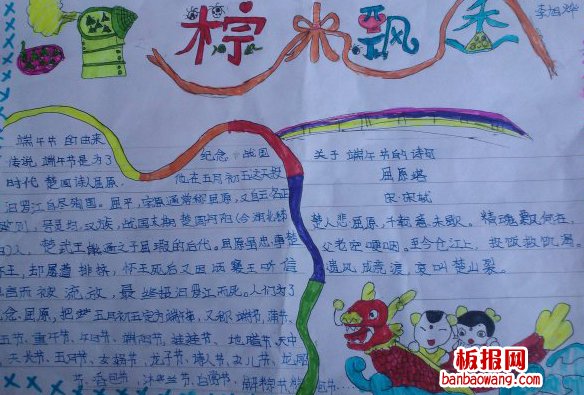 李旭烨
柠米飘香
端午节的由来
传说端午节是为了
纪念战国
时代楚国诗人屈原,
他在五月初五这天投
汨罗江自尽殉国。屈平,字原通常称屈原,又自云名正
则,号灵均,汉族,战国末期楚国丹阳(今湖北秭
归)人,楚武王熊通之子屈瑕的后代。屈原虽忠事楚
怀王,却屡遭排挤,怀王死后又因顷襄王听信
谗言而被流放,最终投汨罗江而死。人们为了
纪念屈原,把农五月初五定为端阳,又称端节,蒲节、
五节、重午节、午日节、端阳节、娃娃节、地腊节、天中
天长节、五月节、女娲节、龙子节、诗人节、女儿节、龙舟
节、香包节、沐兰节、白赏节、解粽节、
包节
关于端午节的诗句
屈原塔
宋·宋轼
楚人悲屈原,千载意未歇。精魂飘何在,
父老空哽咽。至今仓江上,投饭救饥渴。
遗风成竞渡,哀叫楚山裂。
板报网
banbaowang.com